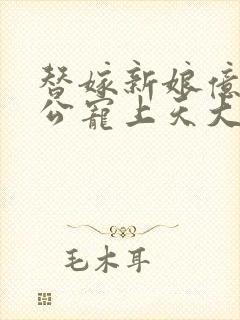 替嫁新娘億
公寵上天大
毛木耳